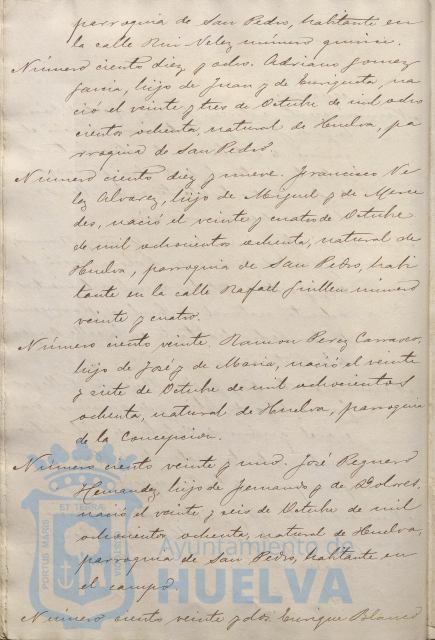 parroquia de San Pedro, habitante en
la calle Rui Velez número quince.
Número ciento diez y ocho. Adriano Gomez
Garcia, hijo de Juan y de Enriqueta, na
ció el veinte y tres de Octubre de mil ocho
cientos ochenta, natural de Huelva, pa
rroquia de San Pedro.
Número ciento diez y nueve. Francisco Ve
lez Alvarez, hijo de Miguel y de Merce
des, nació el veinte y cuatro de Octubre
de mil ochocientos ochenta, natural de
Huelva, parroquia de San Pedro, habi
tante en la calle Rafael Guillen número
veinte y cuatro.
Número ciento veinte. Ramon Perez Carrasco,
hijo de José y de Maria, nació el veinte
y siete de Octubre de mil ochocientos
ochenta, natural de Huelva, parroquia
de la Concepcion.
Número ciento veinte y uno. José Reguero
Hernandez, hijo de Fernando y de Dolores,
nació el veinte y seis de Octubre de mil
ochocientos ochenta, natural de Huelva,
parroquia de San Pedro, habitante en
el campo.
Número ciento veinte y dos. Enrique Blanco
PORTUS MARIS
ET TERRAE
Ayuntamiento de
HUELVA